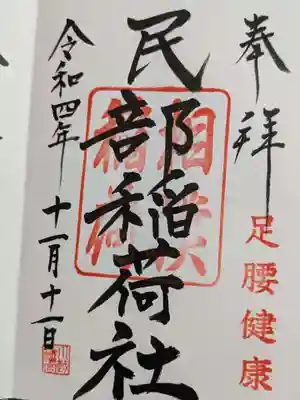 奉拝
足腰健康
民部稲荷社
相模
稲荷
令和四年
十一月十一日